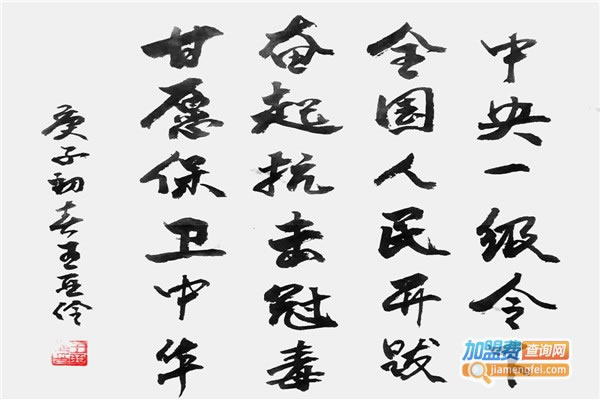 中央一级令下
全国人民开拔
奋起抗击冠毒
甘愿保卫中华
庚子初春王亚伶
加盟费查询网
jiamengfei.com